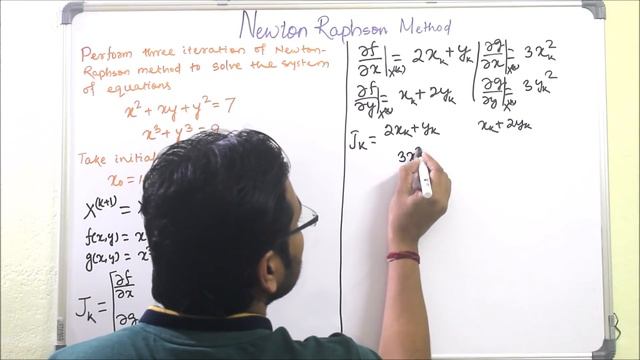 Newton Raphson Method
Perform three iteration of Newton-
Raphson method to solve the system
of equations
x² + xy + y² = 7
x³ + y³ = 9
Take initial
x₀ = 1
X⁽ᵏ⁺¹⁾ =
f(x,y) = x
g(x,y) = x
Jₖ = [∂f/∂x
∂g
∂f/∂x|ₓ₍ₖ₎ = 2xₖ + yₖ
∂g/∂x|ₓ₍ₖ₎ = 3xₖ²
∂f/∂y|ₓ₍ₖ₎ = xₖ + 2yₖ
∂g/∂y|ₓ₍ₖ₎ = 3yₖ²
Jₖ = 2xₖ + yₖ xₖ + 2yₖ
3x